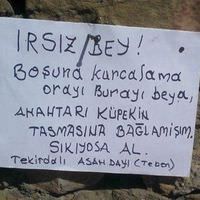 IRSIZ BEY!
Boşuna kurcalama
orayı burayı beya,
AHAHTARI KÜPEKİN
TASMASINA BAĞLAMIŞIM.
SIKIYOSA AL.
Tekirdalı ASAN DAYI (Teben)